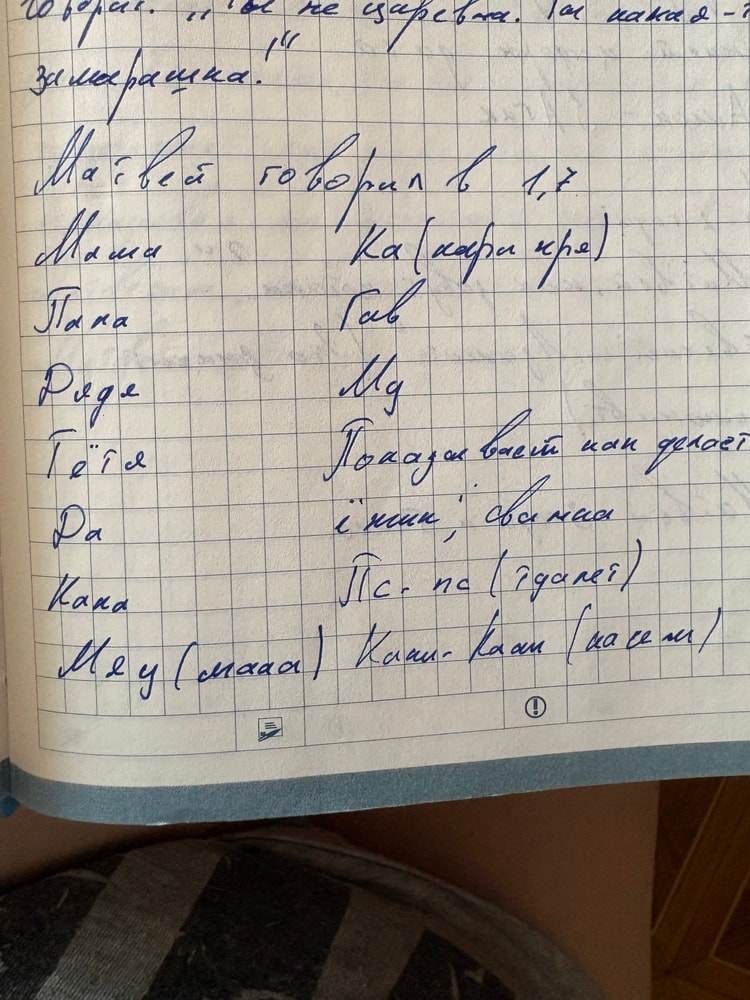 говорит: „Ты не царевна. Ты какая-
замарашка!"
Матвей говорил в 1,7
Мама Ка (кари кря)
Папа Гав
Дядя Му
Тётя Показывает как делает
Да ёжик;
Кака Пс-пс (туалет)
Мяу (мааа) Каш-Каш